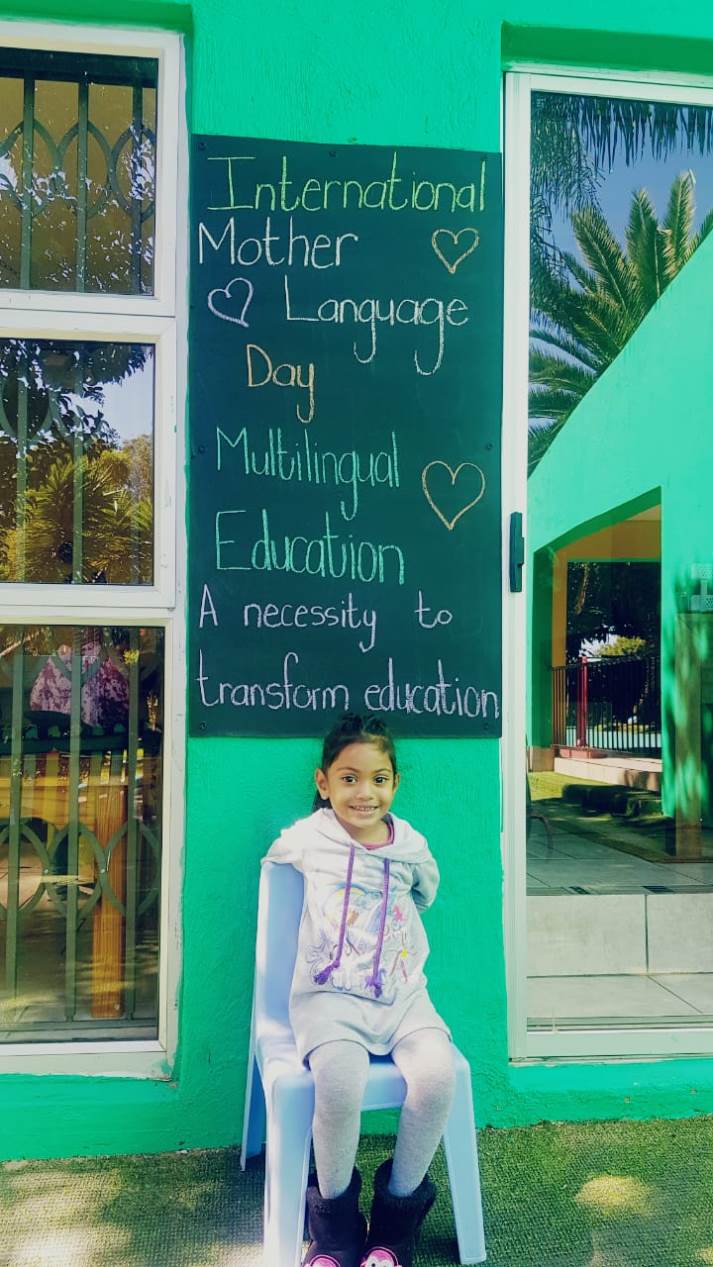 International
Mother
Language
Day
Multilingual
Education
A necessity to
transform education